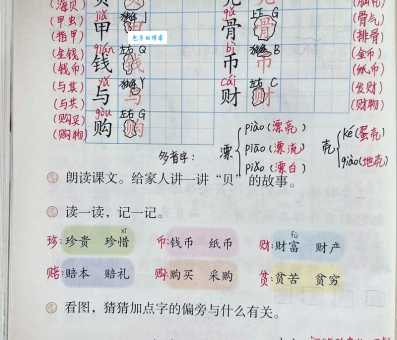 (海贝)
(甲虫)
(指甲)
(金钱)
(钱币)
(与其)
(与共)
(购买)
(购物)
甲 jiǎ 独体 D
钱 qián 左右 Q
与 yǔ 独体 Y
购 gòu 左右 G
骨 gǔ 上下 G
币 bì 独体 B
财 cái 左右 C
(骨气)
(排骨)
(金币)
(纸币)
(发财)
(财物)
多音字：
漂 piāo(漂亮)
piāo(漂流)
piǎo(漂白)
壳 ké(蛋壳)
qiào(地壳)
朗读课文。给家人讲一讲“贝”的故事。
读一读，记一记。
珍：珍贵 珍惜 xī
币：钱币 纸币
财：财富 fù 财产
赔：赔本 赔礼
购：购买 采购
贫：贫苦 贫穷
看图，猜猜加点字的偏旁与什么有关。